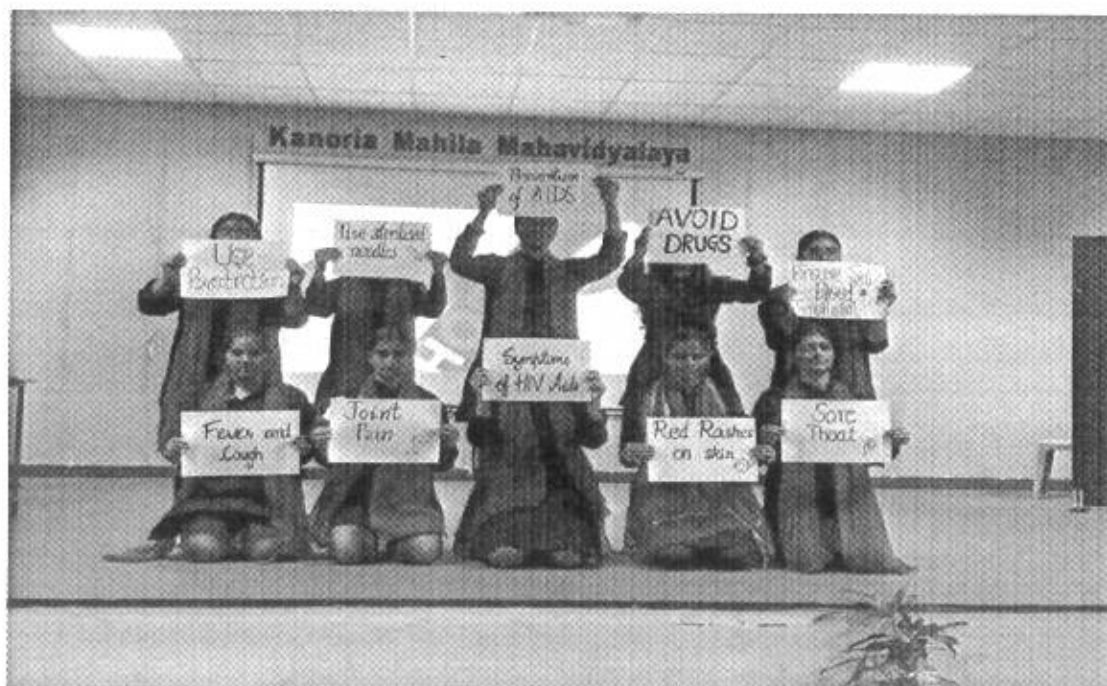 Kanoria Mahila Mahavidyalaya
Prevention
of AIDS
Use
Use sterilised
needles
AVOID
DRUGS
Blood
Symptoms
of HIV Aids
Fever and
Cough
Joint
Pain
Red Rashes
on skin
Sore
Thoat